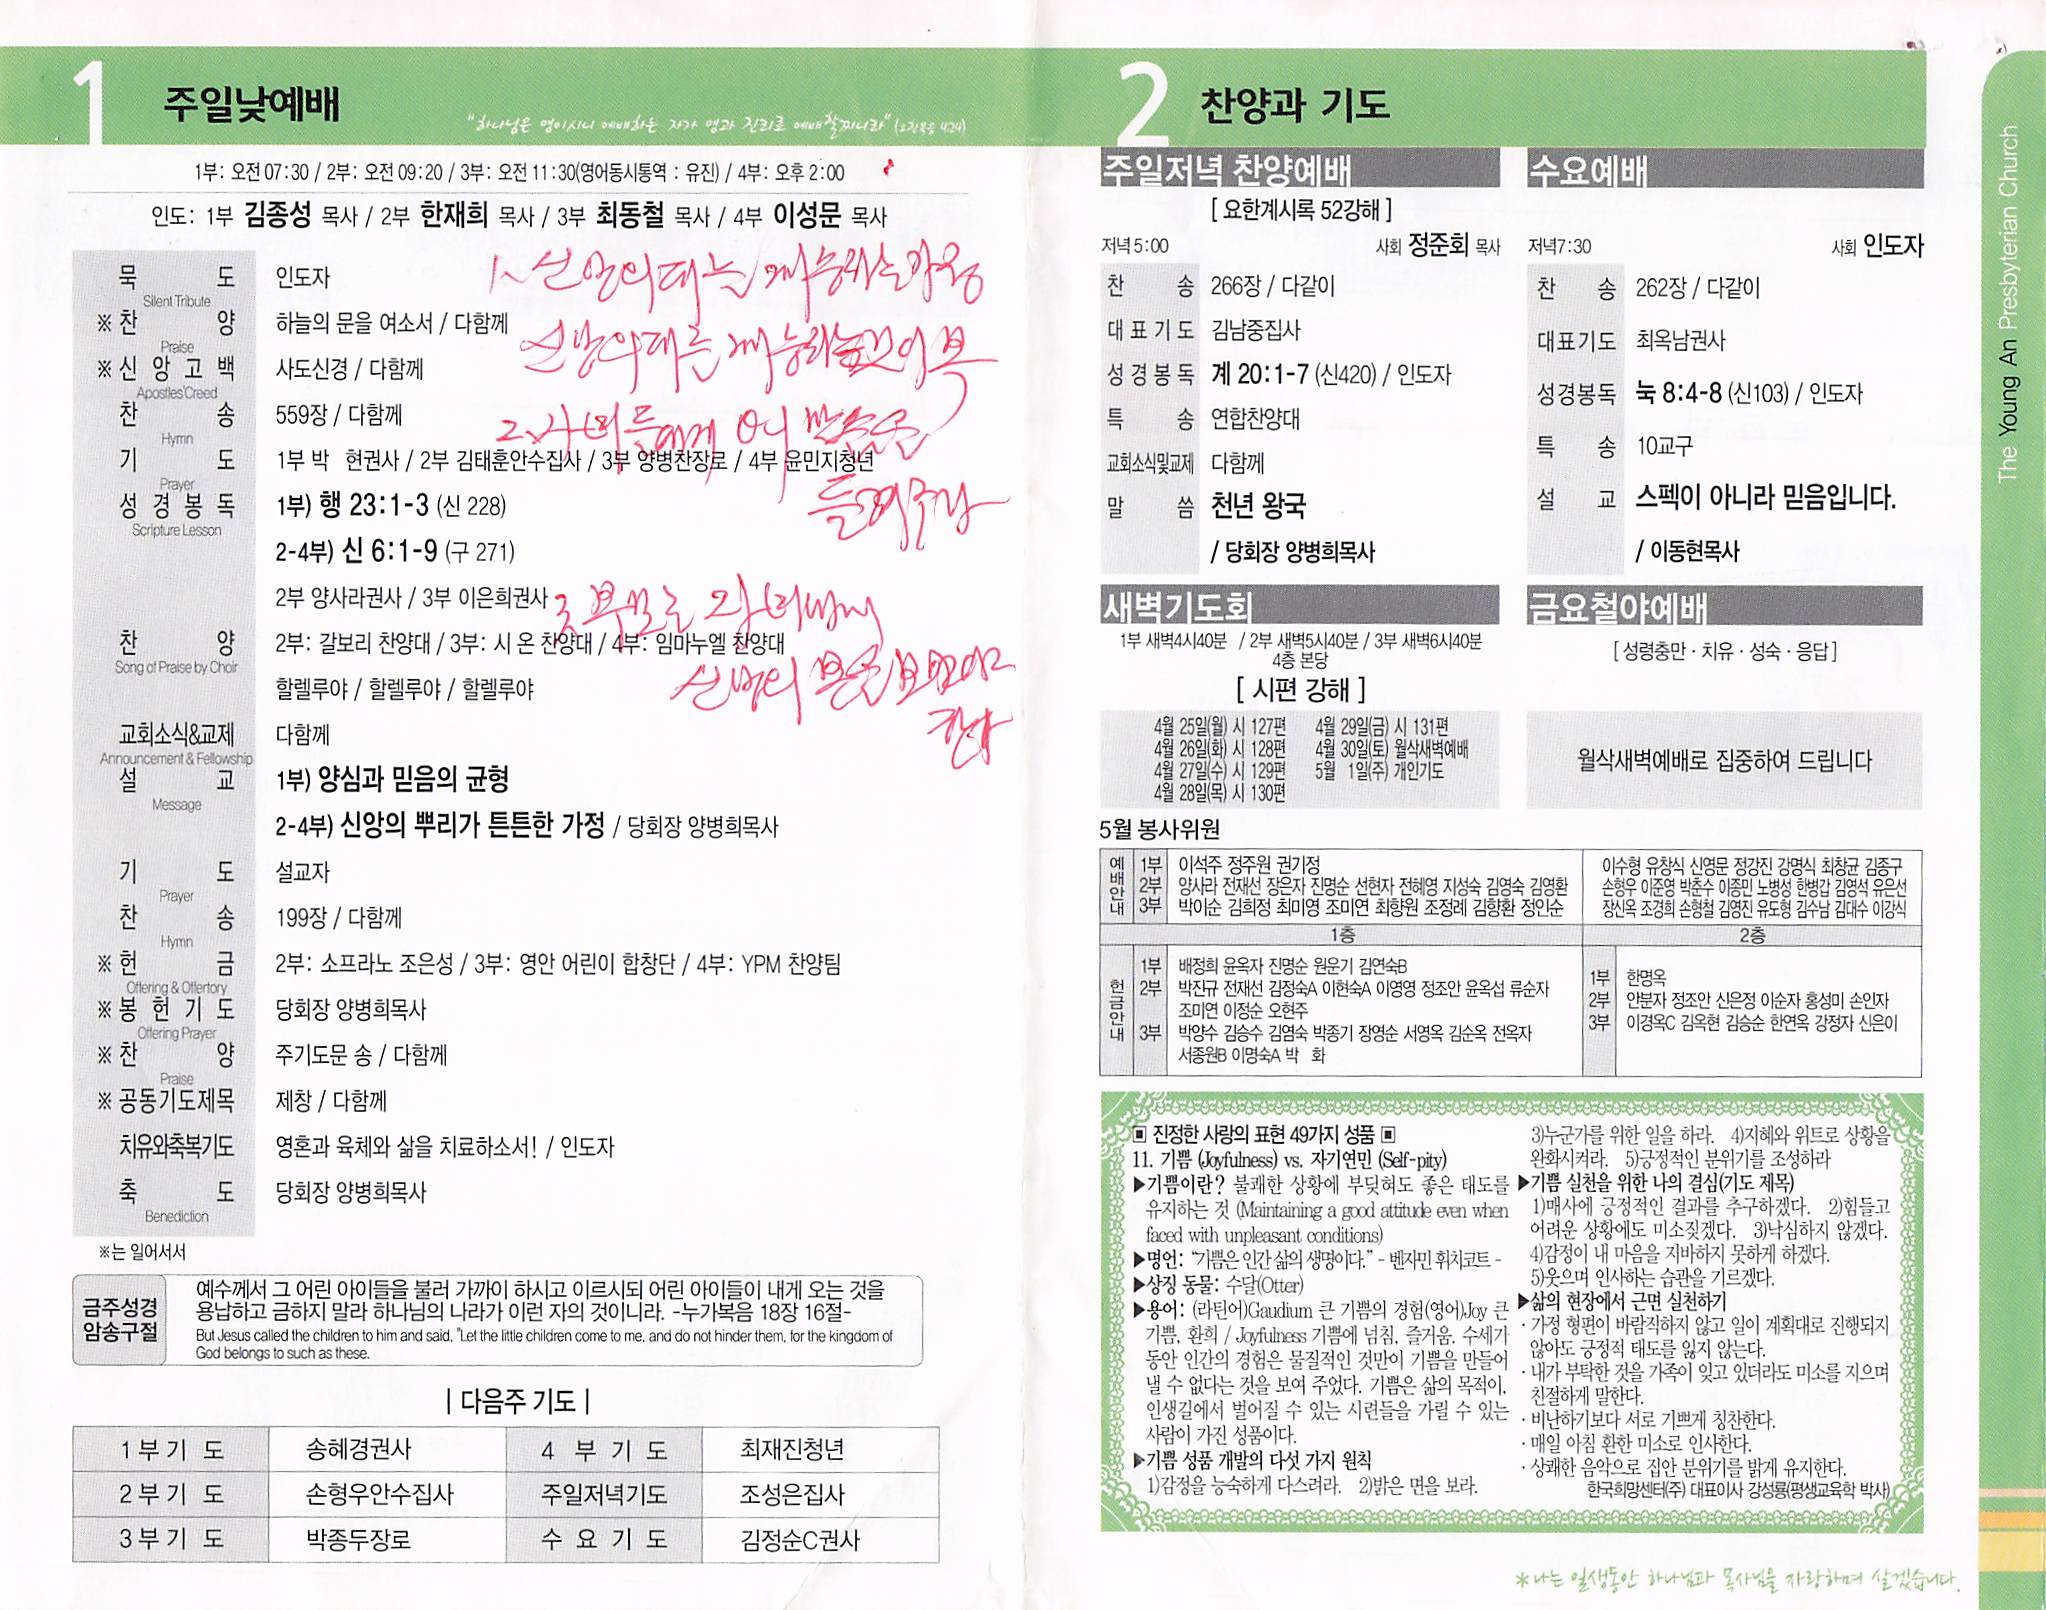 1 주일낮예배
"하나님은 영이시니 예배하는 자가 영과 진리로 예배할찌니라" (요한복음 4:24)
1부: 오전 07:30 / 2부: 오전 09:20 / 3부: 오전 11:30(영어동시통역 : 유진) / 4부: 오후 2:00
인도: 1부 김종성 목사 / 2부 한재희 목사 / 3부 최동철 목사 / 4부 이성문 목사
묵 도 인도자
Silent Tribute
※ 찬 양 하늘의 문을 여소서 / 다함께
Praise
※ 신 앙 고 백 사도신경 / 다함께
Apostles'Creed
찬 송 559장 / 다함께
Hymn
기 도 1부 박 현권사 / 2부 김태훈안수집사 / 3부 양병찬장로 / 4부 윤민지청년
Prayer
성 경 봉 독 1부) 행 23:1-3 (신 228)
Scripture Lesson
2-4부) 신 6:1-9 (구 271)
2부 양사라권사 / 3부 이은희권사
찬 양 2부: 갈보리 찬양대 / 3부: 시 온 찬양대 / 4부: 임마누엘 찬양대
Song of Praise by Choir
할렐루야 / 할렐루야 / 할렐루야
교회소식&교제 다함께
Announcement & Fellowship
설 교 1부) 양심과 믿음의 균형
Message
2-4부) 신앙의 뿌리가 튼튼한 가정 / 당회장 양병희목사
기 도 설교자
Prayer
찬 송 199장 / 다함께
Hymn
※ 헌 금 2부: 소프라노 조은성 / 3부: 영안 어린이 합창단 / 4부: YPM 찬양팀
Offering & Offertory
※ 봉 헌 기 도 당회장 양병희목사
Offering Prayer
※ 찬 양 주기도문 송 / 다함께
Praise
※ 공동기도제목 제창 / 다함께
치유와축복기도 영혼과 육체와 삶을 치료하소서! / 인도자
축 도 당회장 양병희목사
Benediction
※는 일어서서
금주성경 암송구절
예수께서 그 어린 아이들을 불러 가까이 하시고 이르시되 어린 아이들이 내게 오는 것을
용납하고 금하지 말라 하나님의 나라가 이런 자의 것이니라. -누가복음 18장 16절-
But Jesus called the children to him and said, "Let the little children come to me, and do not hinder them, for the kingdom of
God belongs to such as these.
| 다음주 기도 |
1 부 기 도 송혜경권사 4 부 기 도 최재진청년
2 부 기 도 손형우안수집사 주일저녁기도 조성은집사
3 부 기 도 박종두장로 수 요 기 도 김정순C권사
2 찬양과 기도
주일저녁 찬양예배
[ 요한계시록 52강해 ]
저녁 5:00 사회 정준회 목사
찬 송 266장 / 다같이
대 표 기 도 김남중집사
성 경 봉 독 계 20:1-7 (신420) / 인도자
특 송 연합찬양대
교회소식및교제 다함께
말 씀 천년 왕국
/ 당회장 양병희목사
수요예배
저녁7:30 사회 인도자
찬 송 262장 / 다같이
대표기도 최옥남권사
성경봉독 눅 8:4-8 (신103) / 인도자
특 송 10교구
설 교 스펙이 아니라 믿음입니다.
/ 이동현목사
새벽기도회
1부 새벽4시40분 / 2부 새벽5시40분 / 3부 새벽6시40분
4층 본당
[ 시편 강해 ]
4월 25일(월) 시 127편 4월 29일(금) 시 131편
4월 26일(화) 시 128편 4월 30일(토) 월삭새벽예배
4월 27일(수) 시 129편 5월 1일(주) 개인기도
4월 28일(목) 시 130편
금요철야예배
[ 성령충만 · 치유 · 성숙 · 응답 ]
월삭새벽예배로 집중하여 드립니다
5월 봉사위원
예배안내
1부 이석주 정주원 권기정 이수형 유창식 신영문 정강진 강명식 최창균 김종구
2부 양사라 전재선 장은자 진명순 선현자 전혜영 지성숙 김영숙 김영환 손형우 이준영 박춘수 이종민 노병성 한병갑 김영석 유은선
3부 박이순 김희정 최미영 조미연 최향원 조정례 김향환 정인순 장신옥 조경희 손형철 김영진 유도형 김수남 김대수 이강식
1층 2층
헌금안내
1부 배정희 윤옥자 진명순 원운기 김연숙B
2부 박진규 전재선 김정숙A 이현숙A 이영영 정조안 윤옥섭 류순자
조미연 이정순 오현주
3부 박양수 김승수 김염숙 박종기 장영순 서영옥 김순옥 전옥자
서종원B 이명숙A 박 화
1부 한명옥
2부 안분자 정조안 신은정 이순자 홍성미 손인자
3부 이경옥C 김옥현 김승순 한연옥 강정자 신은이
▣ 진정한 사랑의 표현 49가지 성품 ▣
11. 기쁨 (Joyfulness) vs. 자기연민 (Self-pity)
▶기쁨이란? 불쾌한 상황에 부딪혀도 좋은 태도를
유지하는 것 (Maintaining a good attitude even when
faced with unpleasant conditions)
▶명언: "기쁨은 인간 삶의 생명이다." - 벤자민 휘치코트 -
▶상징 동물: 수달(Otter)
▶용어: (라틴어)Gaudium 큰 기쁨의 경험(영어)Joy 큰
기쁨, 환희 / Joyfulness 기쁨에 넘침, 즐거움. 수세기
동안 인간의 경험은 물질적인 것만이 기쁨을 만들어
낼 수 없다는 것을 보여 주었다. 기쁨은 삶의 목적이,
인생길에서 벌어질 수 있는 시련들을 가릴 수 있는
사람이 가진 성품이다.
▶기쁨 성품 개발의 다섯 가지 원칙
1)감정을 능숙하게 다스려라. 2)밝은 면을 보라.
3)누군가를 위한 일을 하라. 4)지혜와 위트로 상황을
완화시켜라. 5)긍정적인 분위기를 조성하라
▶기쁨 실천을 위한 나의 결심(기도 제목)
1)매사에 긍정적인 결과를 추구하겠다. 2)힘들고
어려운 상황에도 미소짓겠다. 3)낙심하지 않겠다.
4)감정이 내 마음을 지바하지 못하게 하겠다.
5)웃으며 인사하는 습관을 기르겠다.
▶삶의 현장에서 근면 실천하기
· 가정 형편이 바람직하지 않고 일이 계획대로 진행되지
않아도 긍정적 태도를 잃지 않는다.
· 내가 부탁한 것을 가족이 잊고 있더라도 미소를 지으며
친절하게 말한다.
· 비난하기보다 서로 기쁘게 칭찬한다.
· 매일 아침 환한 미소로 인사한다.
· 상쾌한 음악으로 집안 분위기를 밝게 유지한다.
한국희망센터(주) 대표이사 강성룡(평생교육학 박사)
*나는 일생동안 하나님과 목사님을 자랑하며 살겠습니다.
The Young An Presbyterian Church